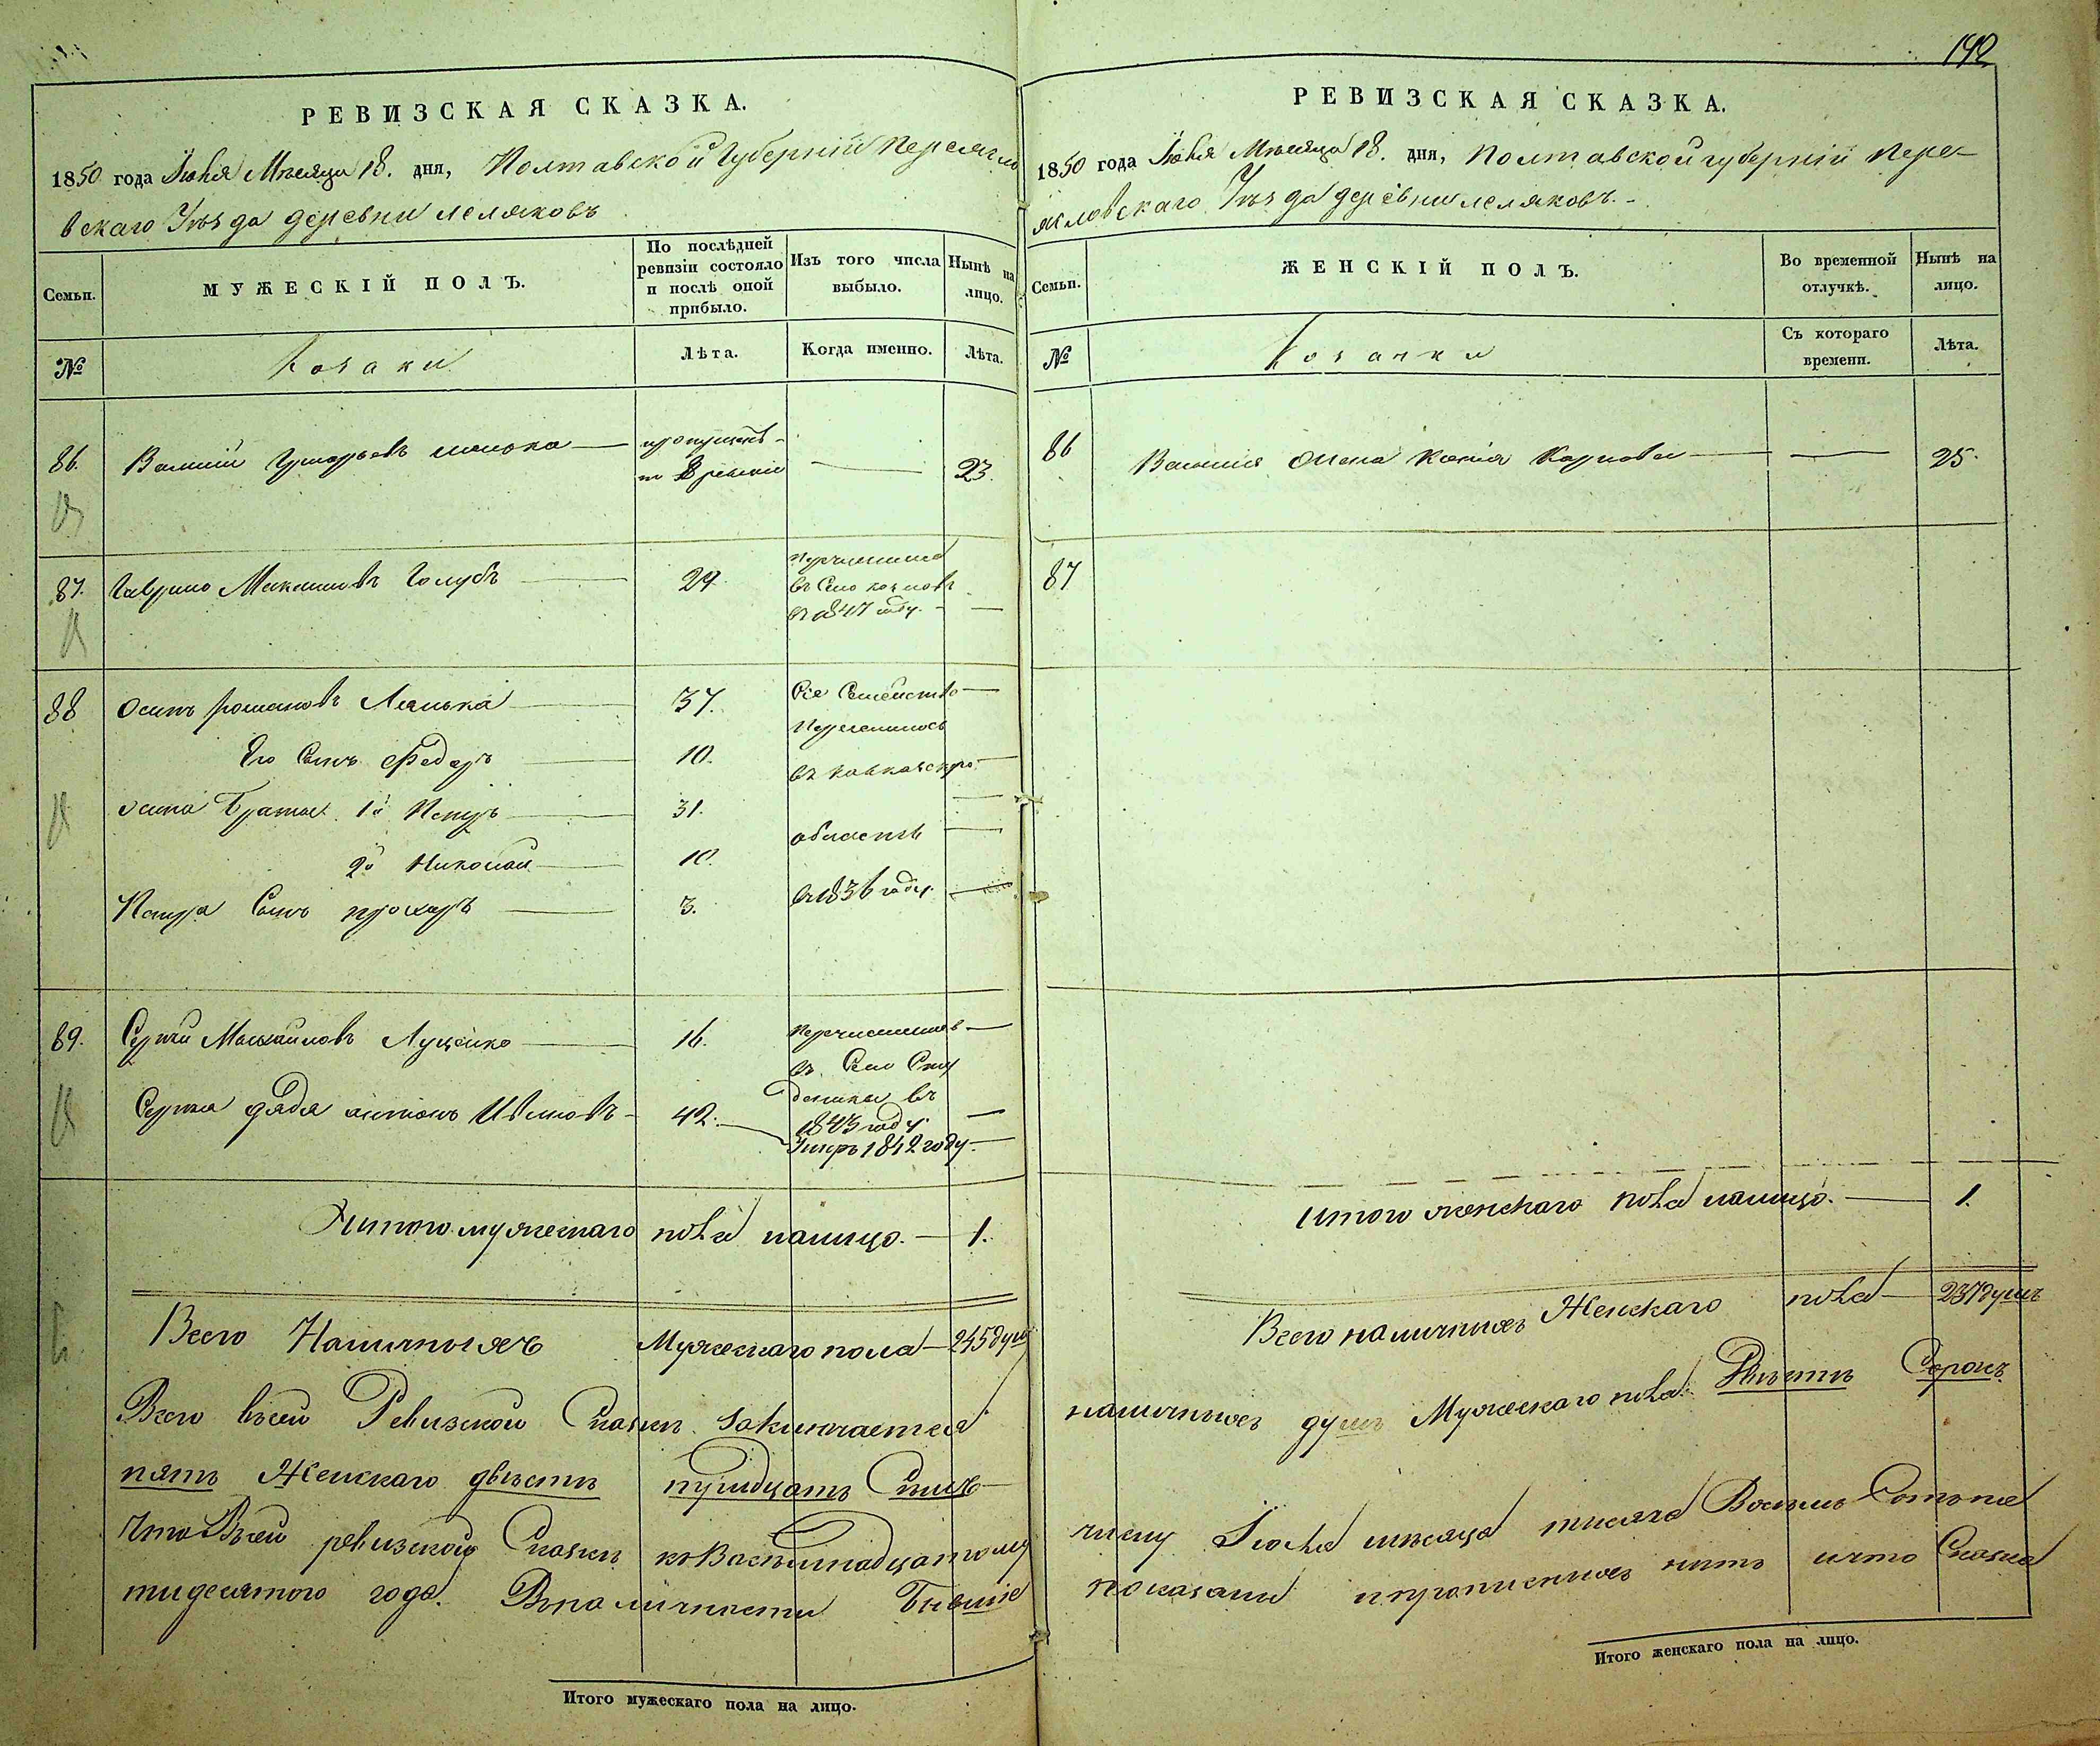 142
РЕВИЗСКАЯ СКАЗКА.
1850 года Іюня Мѣсяца 18. дня, Полтавской Губерніи Переясло
вскаго Уѣзда деревни леляковъ
Семьи.
МУЖЕСКІЙ ПОЛЪ.
По послѣдней ревизіи состояло и послѣ оной прибыло.
Изъ того числа выбыло.
Нынѣ на лицо.
№
Козаки
Лѣта.
Когда именно.
Лѣта.
86. Василий Григорьевъ — пропущенъ — 23.
ревизіи
87. Гаврило Максимовъ Голубъ — 29. Перечислился
въ Село
въ 1847 году. —
88 Осипъ романовъ Лялька — 37. Сіе Семейство —
Переселилось
Его Сынъ Федоръ — 10. въ кавказскую —
Осипа Братья 1й Петръ — 31.
область —
2й Николай — 10.
Петра Сынъ прохоръ — 3. въ 1836 году. —
89. Сергій Михайловъ Луценко — 16. Перечислился —
въ Село Сту
деники въ
Сергея дядя антонъ Ивановъ — 42. 1843 году. —
Умеръ 1842 году. —
Итого мужескаго пола налицо. — 1.
Всего Наличныхъ Мужескаго пола — 245 душъ
Всего всей Ревизской Сказки заключается
пять Женскаго двѣсти тридцать Семь
что Всей ревизской Сказки ко Восемнадцатому
тидесятого года. Вналичности Бывшіе
Итого мужескаго пола на лицо.
РЕВИЗСКАЯ СКАЗКА.
1850 года Іюня Мѣсяца 18. дня, Полтавской губерніи Пере-
ясловскаго Уѣзда деревни леляковъ. -
Семьи.
ЖЕНСКІЙ ПОЛЪ.
Во временной отлучкѣ.
Нынѣ на лицо.
№
Козачки
Съ котораго времени.
Лѣта.
86 Василия Жена Карпова — — 25.
87
Итого женскаго пола налицо. — 1.
Всего наличныхъ Женскаго пола — 237 душъ
наличныхъ душъ Мужескаго пола Двѣсти Сорокъ
числу Іюня мѣсяца тысяча Восемь Сотъ пя
показаны и прописныхъ нѣтъ и что Сказка
Итого женскаго пола на лицо.